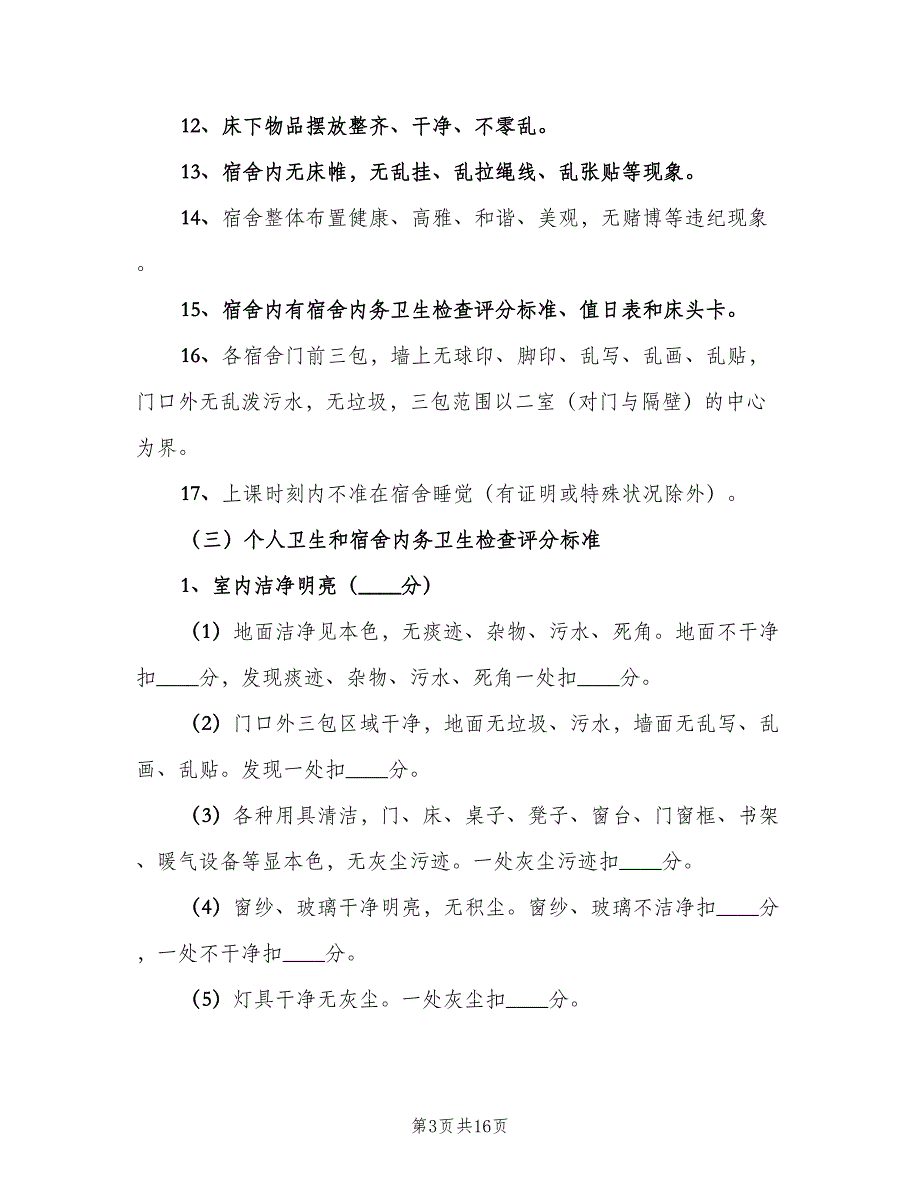 12、床下物品摆放整齐、干净、不零乱。
13、宿舍内无床帷，无乱挂、乱拉绳线、乱张贴等现象。
14、宿舍整体布置健康、高雅、和谐、美观，无赌博等违纪现象
。
15、宿舍内有宿舍内务卫生检查评分标准、值日表和床头卡。
16、各宿舍门前三包，墙上无球印、脚印、乱写、乱画、乱贴，
门口外无乱泼污水，无垃圾，三包范围以二室（对门与隔壁）的中心
为界。
17、上课时刻内不准在宿舍睡觉（有证明或特殊状况除外）。
（三）个人卫生和宿舍内务卫生检查评分标准
1、室内洁净明亮（____分）
（1）地面洁净见本色，无痰迹、杂物、污水、死角。地面不干净
扣____分，发现痰迹、杂物、污水、死角一处扣____分。
（2）门口外三包区域干净，地面无垃圾、污水，墙面无乱写、乱
画、乱贴。发现一处扣____分。
（3）各种用具清洁，门、床、桌子、凳子、窗台、门窗框、书架
、暖气设备等显本色，无灰尘污迹。一处灰尘污迹扣____分。
（4）窗纱、玻璃干净明亮，无积尘。窗纱、玻璃不洁净扣____分
，一处不干净扣____分。
（5）灯具干净无灰尘。一处灰尘扣____分。
第3页共16页